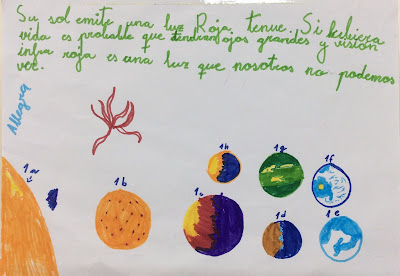 Su sol emite una luz Roja tenue. Si hubiera
vida es probable que tendrian ojos grandes y visión
infra roja es una luz que nosotros no podemos
ver.
Allegra
1a
1b
1c
1h
1g
1f
1d
1e